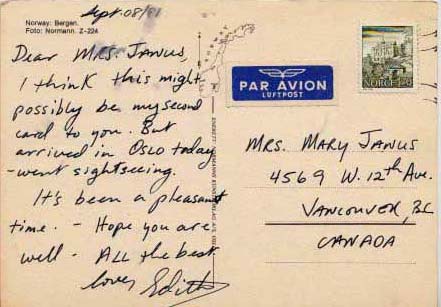 Sept. 08/81
Norway: Bergen.
Foto: Normann. Z-224
Dear Mrs. Janus
I think this might
possibly be my second
card to you. But
arrived in Oslo today
- went sightseeing.
It's been a pleasant
time. - Hope you are
well - All the best.
love, Edith
NORWAY
PAR AVION
LUFTPOST
NORGE
Mrs. Mary Janus
4569 W. 12th Ave.
Vancouver, BC
CANADA